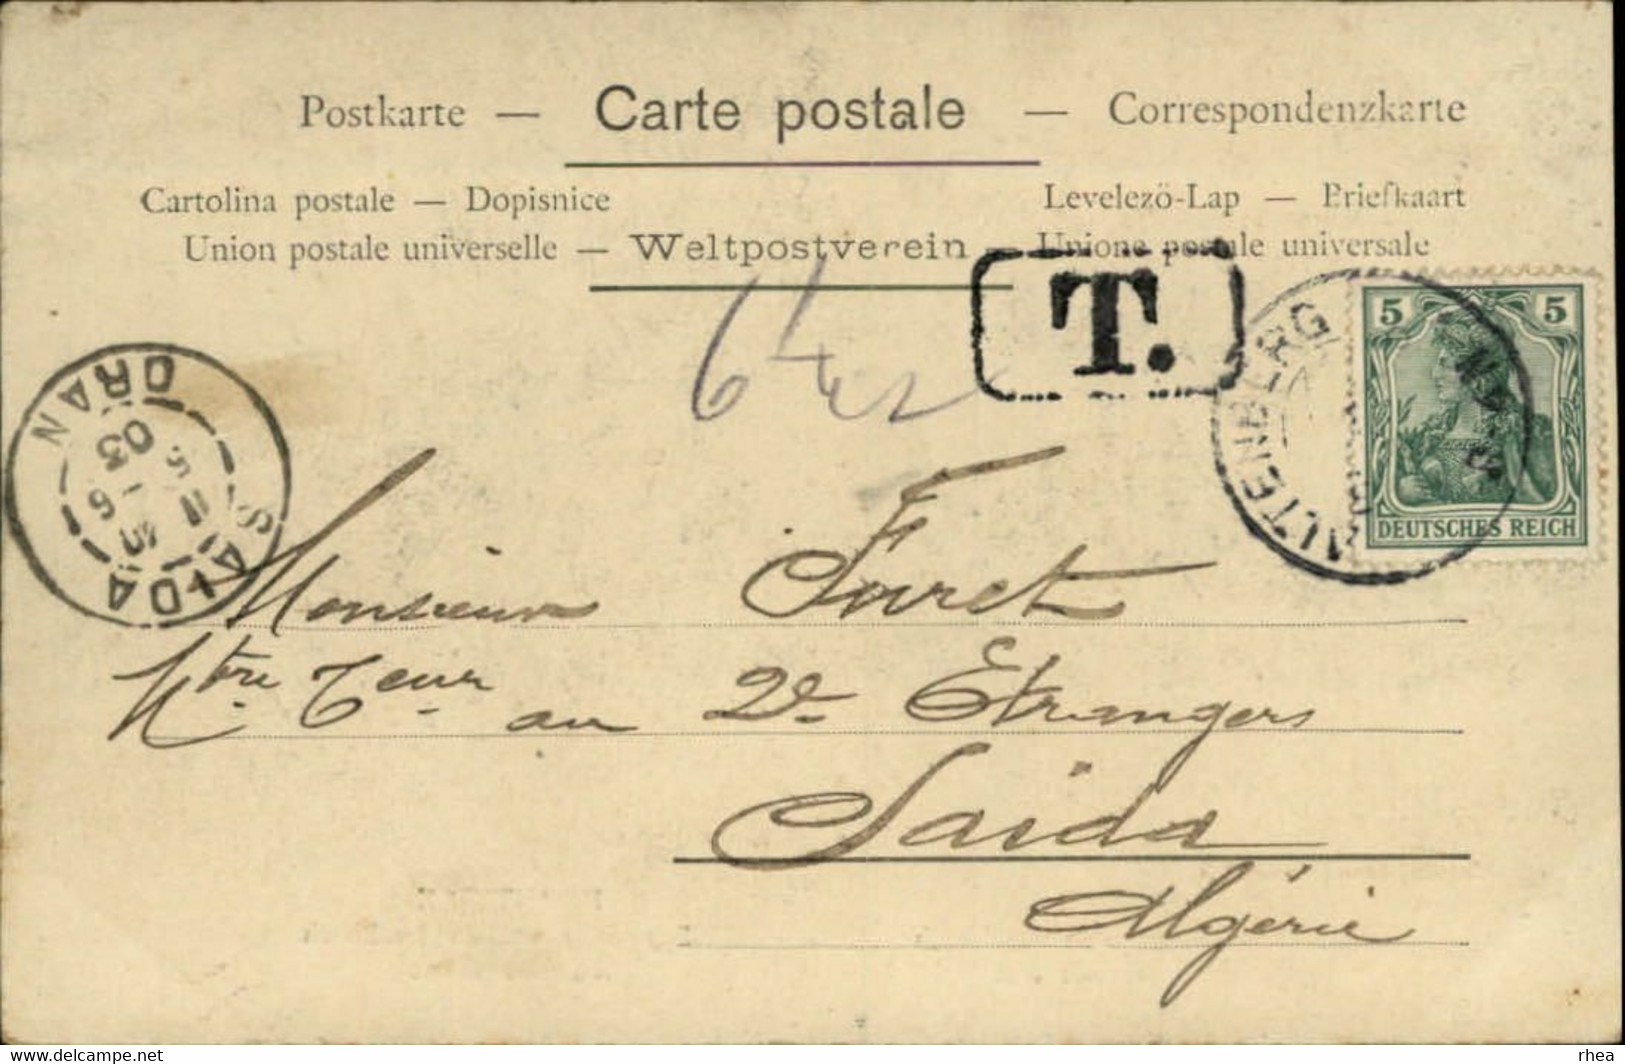 Postkarte — Carte postale — Correspondenzkarte
Cartolina postale — Dopisnice
Levelezö-Lap — Briefkaart
Union postale universelle — Weltpostverein — Unione postale universale
T.
5 5
DEUTSCHES REICH
SAIDA
ORAN
03
Monsieur Furet
au 2e Etrangers
Saïda
Algérie
https://www.delcampe.net
rhea